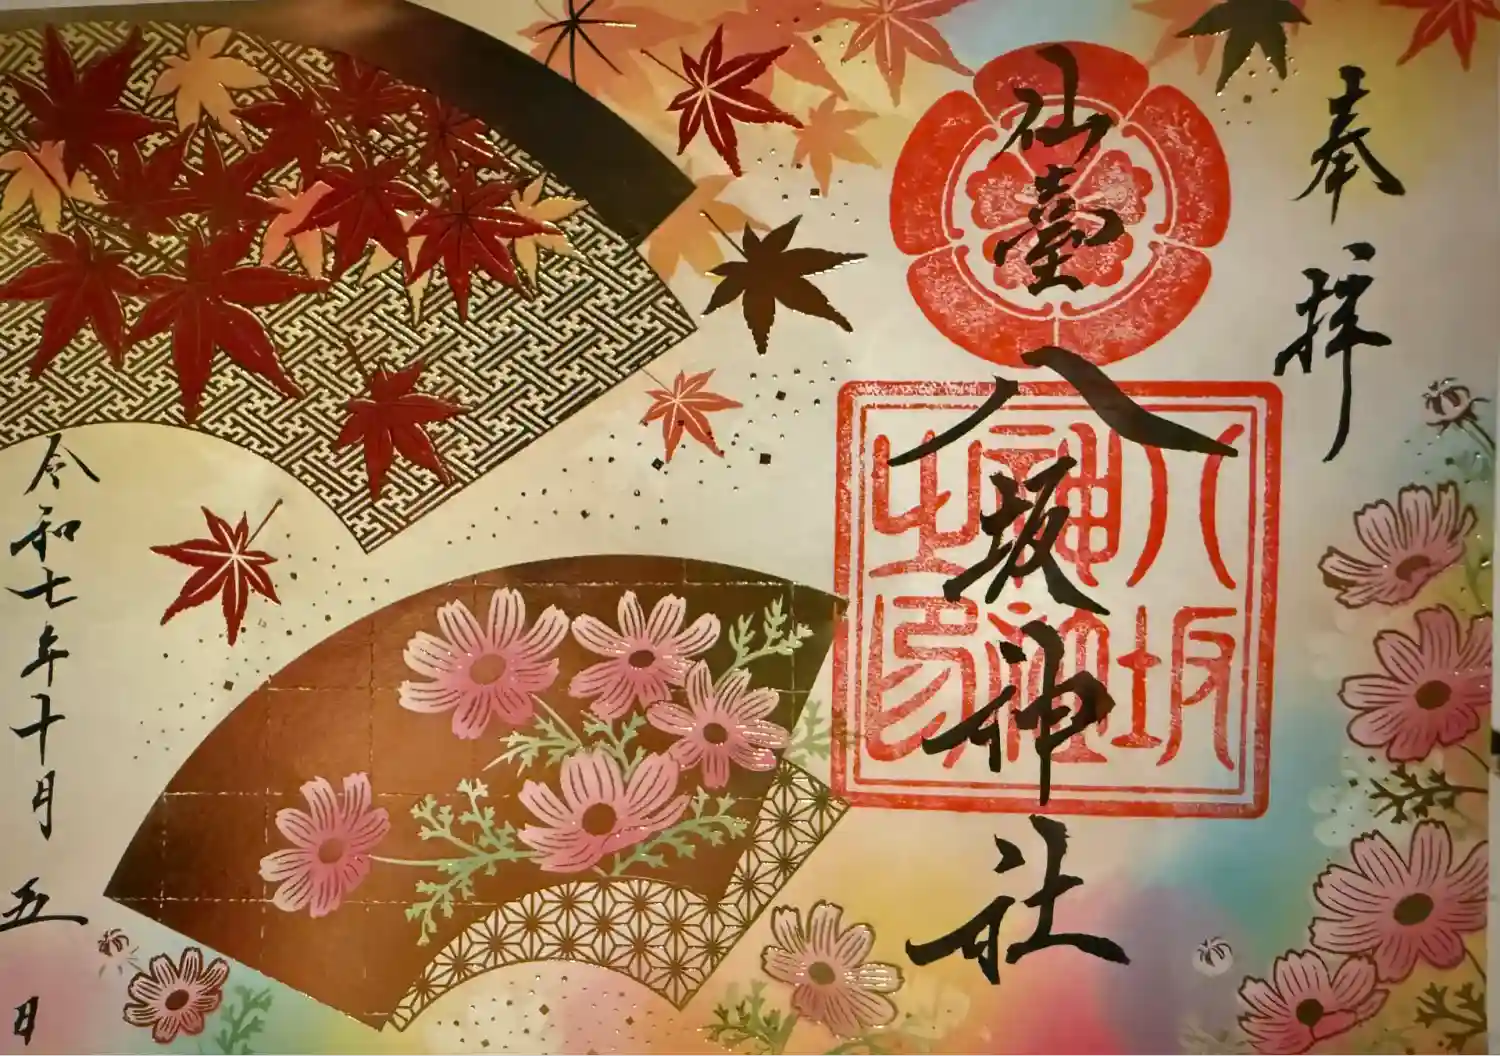 奉拝
仙臺八坂神社
八坂
神社
之印
令和七年十月五日